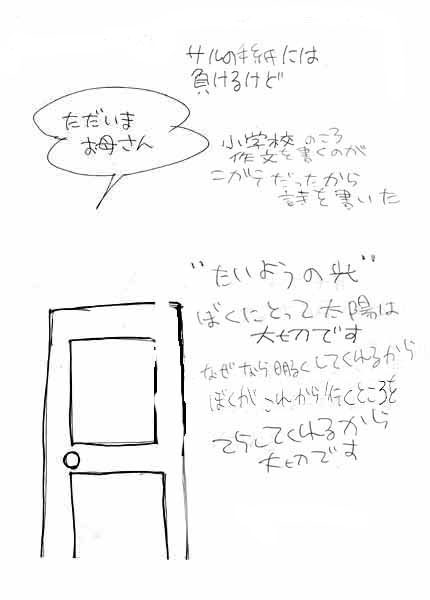 サルの手紙には
負けるけど
ただいま
お母さん
小学校のころ
作文を書くのが
ニガテだったから
詩を書いた
"たいようの光"
ぼくにとって太陽は
大切です
なぜなら明るくしてくれるから
ぼくがこれから行くところを
てらしてくれるから
大切です